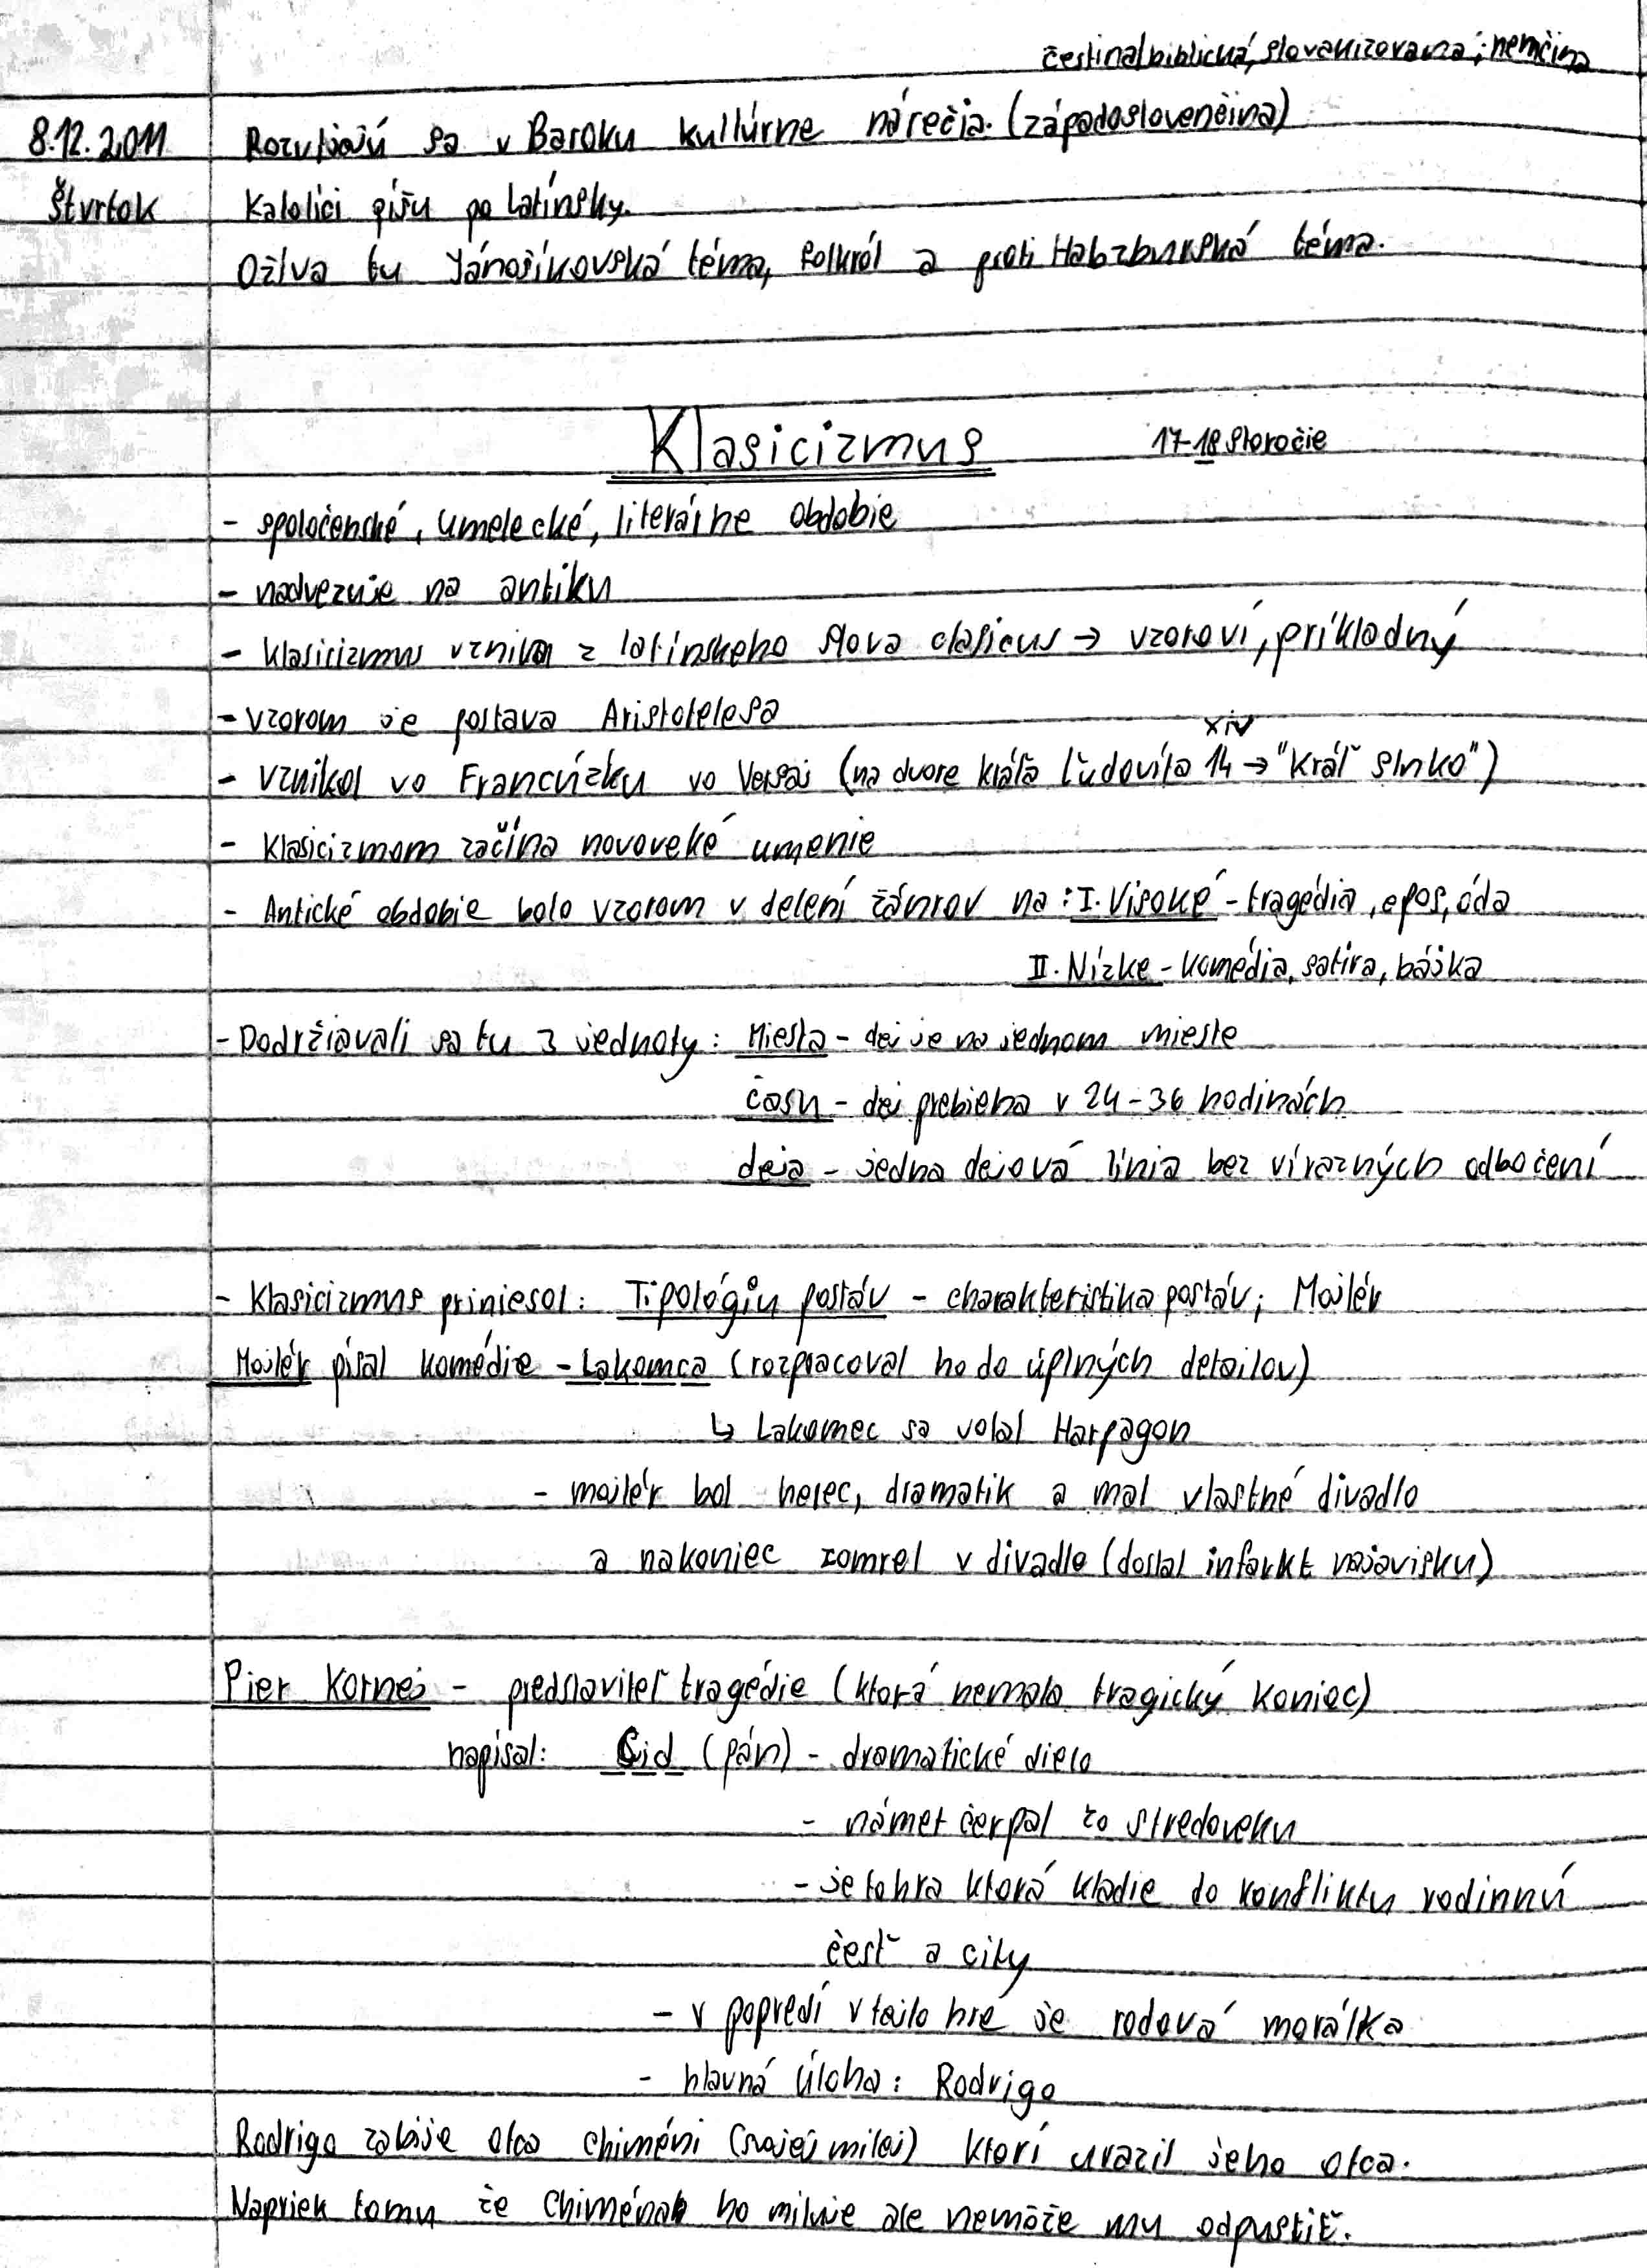 čeština/biblická, slovakizovaná; nemčina
8.12.2011 Rozvýjajú sa v Baroku kultúrne nárečia. (západoslovenčina)
Štvrtok Katolíci píšu po latínsky.
Ožíva tu Jánošíkovská téma, folkról a proti Habzburská téma.
Klasicizmus 17-18 storočie
- spoločenské, umelecké, literárne obdobie
- nadvezuje na antiku
- klasicizmus vznikol z latínskeho slova clasicus → vzoroví, príkladný
- vzorom je postava Aristotelesa
XIV
- vznikol vo Francúzku vo Versaj (na dvore kráľa Ľudovíta 14 → "Kráľ slnko")
- Klasicizmom začína novoveké umenie
- Antické obdobie bolo vzorom v delení žánrov na: I. Visoké - tragédia, epos, óda
II. Nízke - komédia, satira, bájka
- Dodržiavali sa tu 3 jednoty: Miesta - dej je na jednom mieste
času - dej prebieha v 24-36 hodinách
deja - jedna dejová línia bezvírazných odbočení
- Klasicizmus priniesol: Tipológiu postáv - charakteristika postáv; Mojlér
Mojlér písal komédie - Lakomca (rozpracoval ho do úplných detailov)
↳ Lakomec sa volal Harpagon
- mojlér bol herec, dramatik a mal vlastné divadlo
a nakoniec zomrel v divadle (dostal infarkt najavisku)
Pier Kornej - predstaviteľ tragédie (ktorá nemala tragický koniec)
napísal: Cid (pán) - dramatické dielo
- námet čerpal zo stredoveku
- je to hra ktorá kladie do konfliktu rodinnú
česť a city
- v popredí v tejto hre je rodová morálka
- hlavná úloha: Rodrigo
Rodrigo zabije otca chiméni (svojej milej) ktorí urazil jeho otca.
Napriek tomu že Chiména ho miluje ale nemôže mu odpustiť.